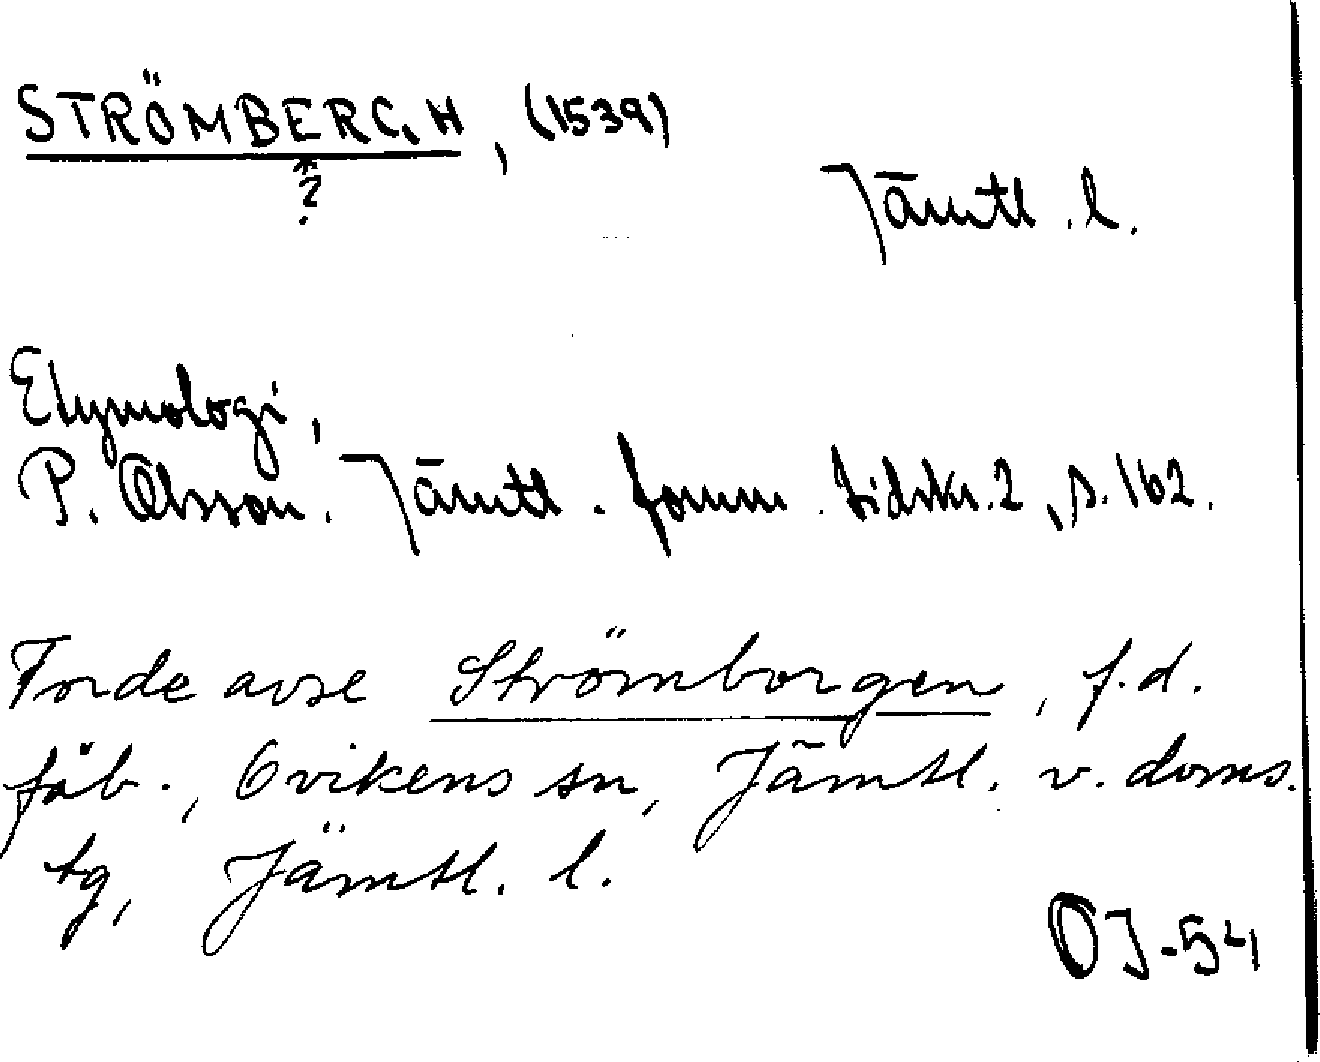 STRÖMBERGH, (1539)
?
Jämtl. l.
Etymologi,
P. Olsson. Jämtl. fornm. tidskr. 2, s. 162.
Torde avse Strömborgen, f.d.
fäb., Ovikens sn, Jämtl. v. doms.
tg, Jämtl. l.
OJ-54